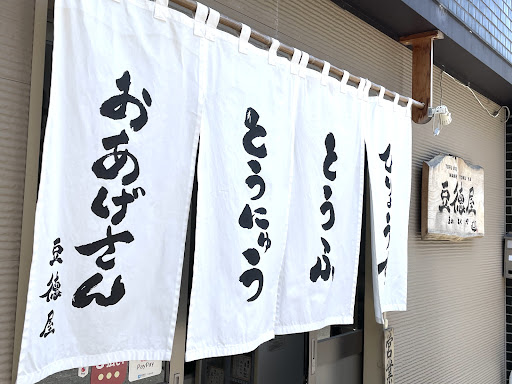 おあげさん
豆德屋
とうにゅう
とうふ
豆德屋
PayPay